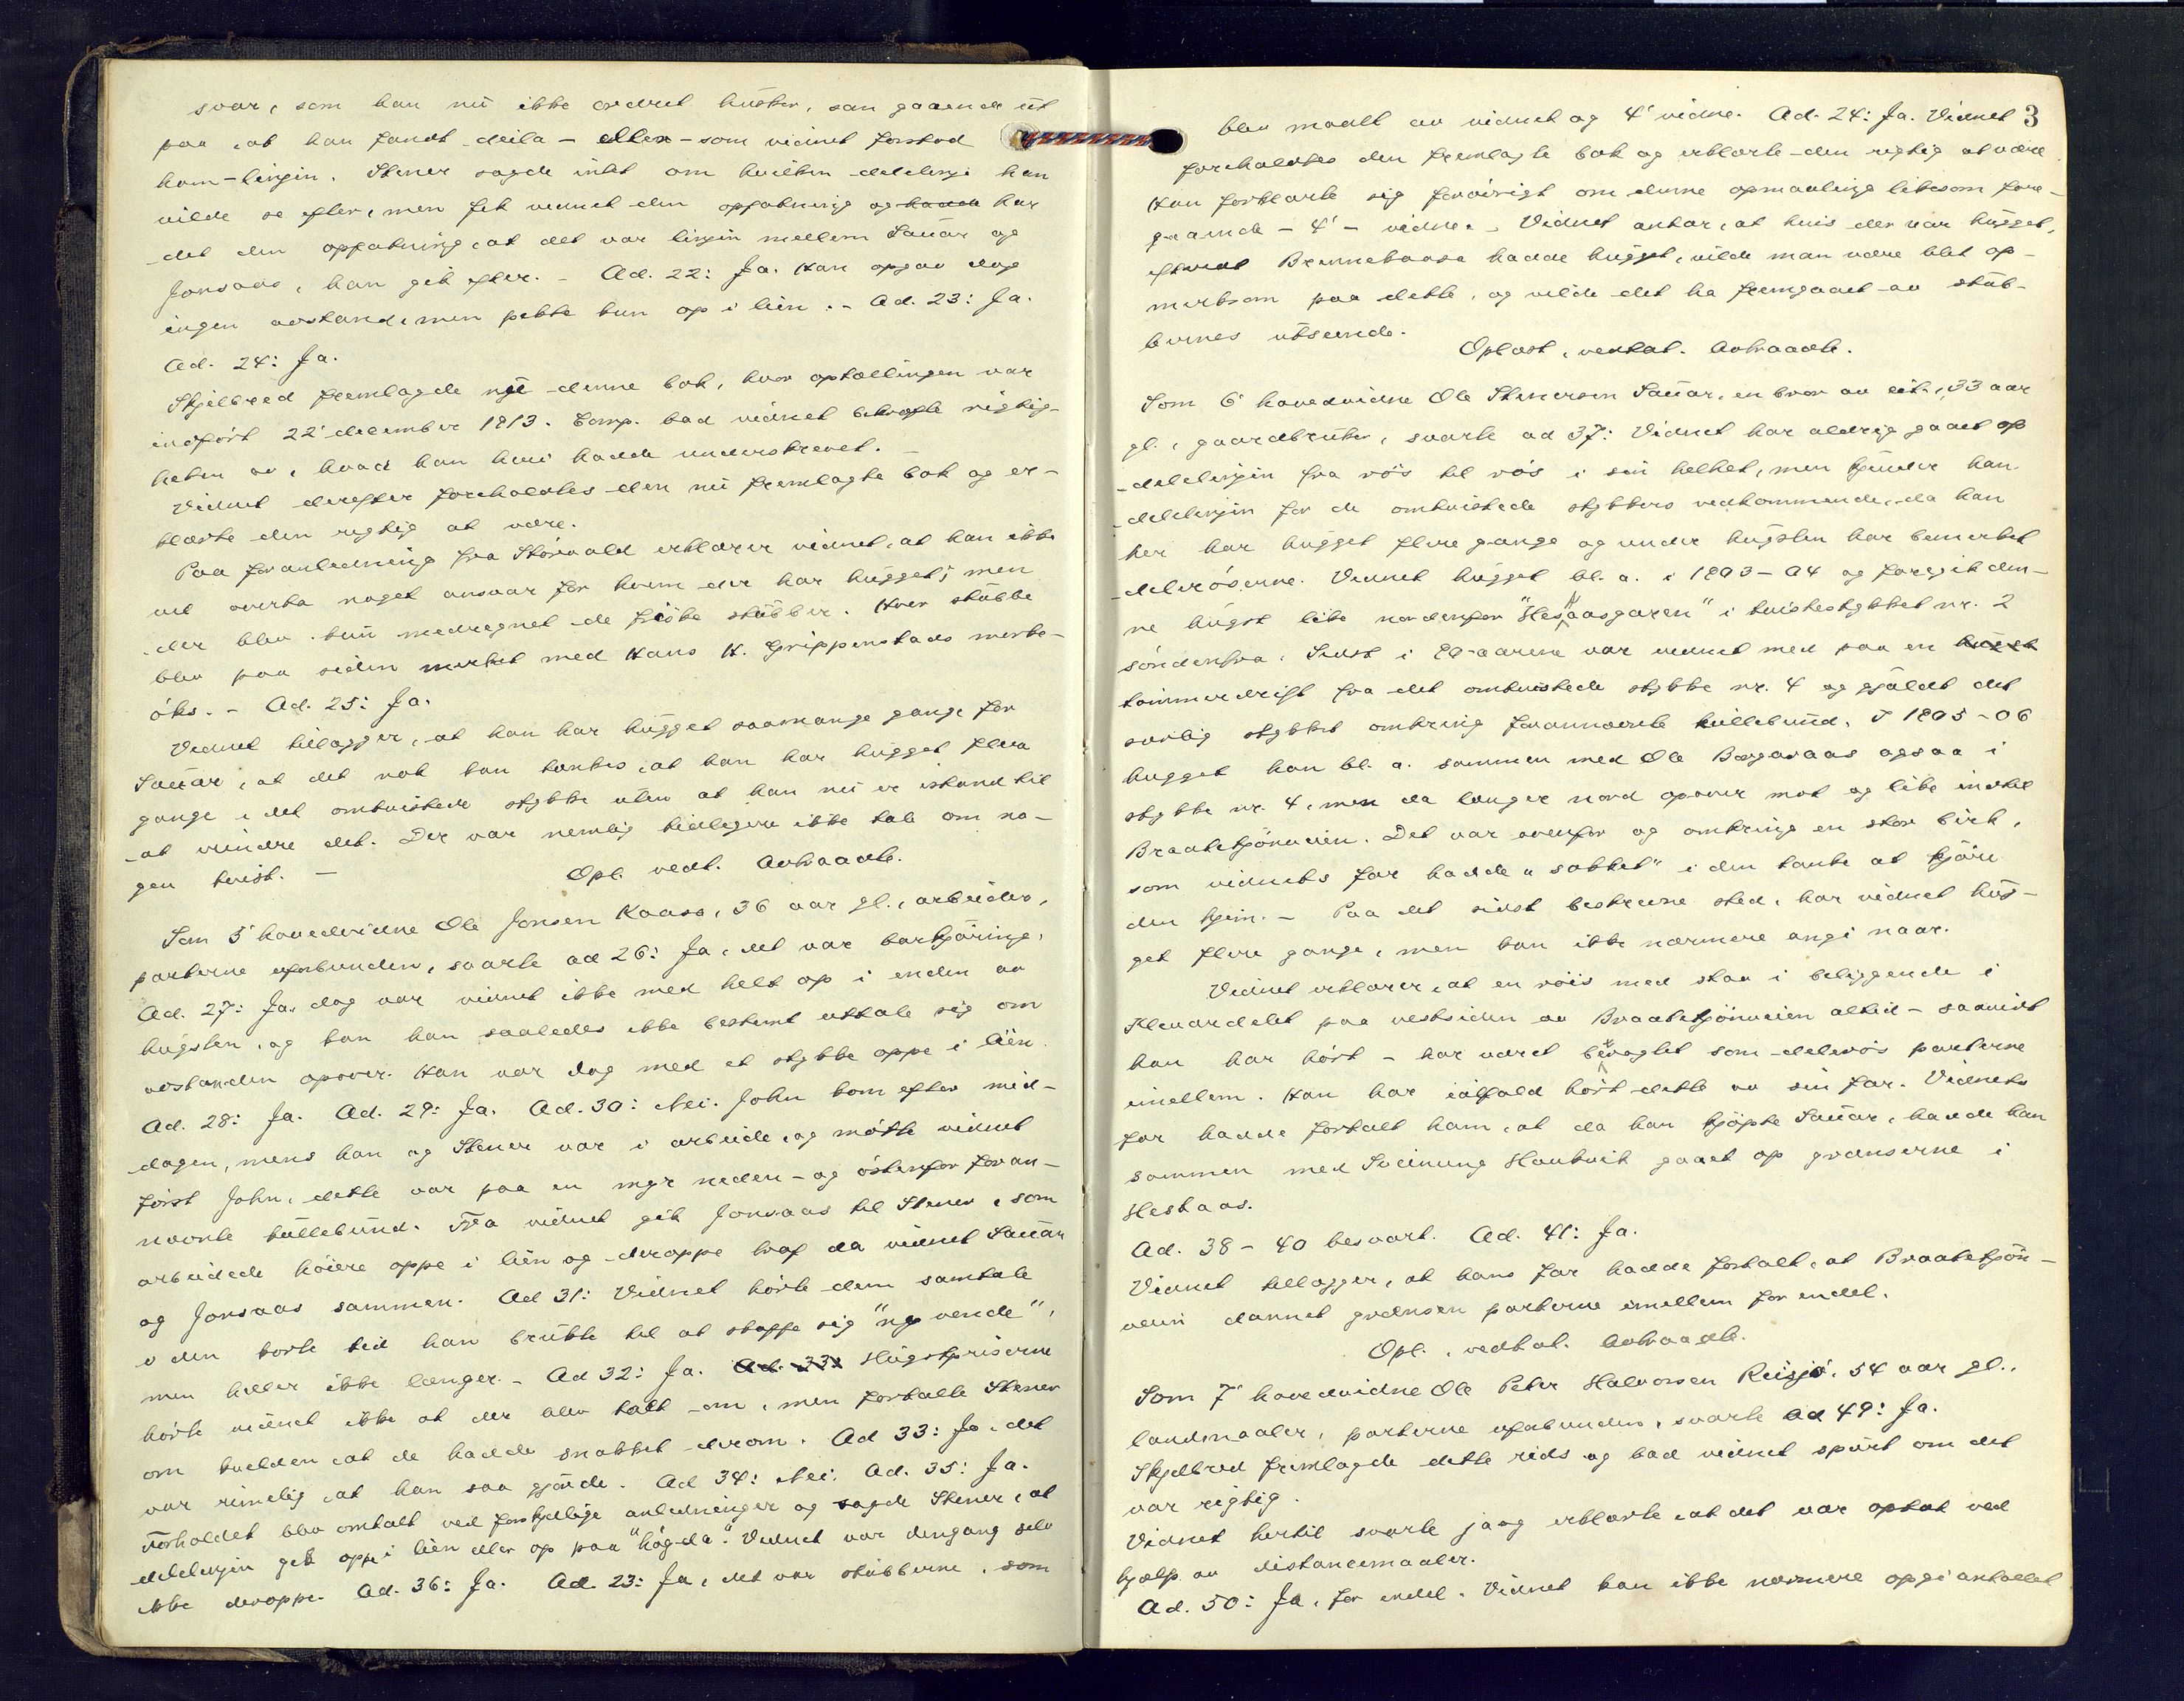 svar, som han nu ikke ordret husker, san gaaende ut
paa, at han fandt deila - eller - som vidnet forstod
ham - linjin. Stener sagde intet om hvilken delelinje han
vilde se efter, men fik vidnet den opfatning og hadde har
det den oppfatning, at det var linjin mellem Sauar og
Jonsaas, han gik efter. - Ad. 22: Ja. Han opgav dog
ingen avstand, men pekte kun op i liin. - Ad. 23: Ja.
Ad. 24: Ja.
Skjelbred fremlagde nu denne bok, hvor optællingen var
indført 22' december 1913. Comp. bad vidnet bekræfte rigtig-
heten av, hvad han heri hadde underskrevet. -
Vidnet derefter foreholdtes den nu fremlagte bok og er-
klærte den rigtig at være.
Paa foranledning fra Stórvold erklærer vidnet, at han ikke
vil overta noget ansvar for hvem der har hugget; men
der blev kun medregnet de friske stubber. Hver stubbe
blev paa siden merket med Hans H. Grippenstads merke-
øks. - Ad. 25: Ja.
Vidnet tilægger, at han har hugget saamange gange for
Sauar, at det nok kan tænkes, at han har hugget flere
gange i det omtvistede stykke uten at han nu er istand til
at mindre det. Der var nemlig tidligere ikke tale om no-
gen tvist. - Opl. vedt. Avtraadte.
Som 5' hovedvidne Ole Jonsen Kaasa, 36 aar gl., arbeider,
parterne uforbunden, svarte ad 26: Ja, det var barkjøring.
Ad. 27: Ja, dog var vidnet ikke med helt op i enden av
hugsten, og kan han saaledes ikke bestemt uttale sig om
avstanden opover. Han var dog med et stykke oppe i liin.
Ad. 28: Ja. Ad. 29: Ja. Ad. 30: Nei. John kom efter mid-
dagen, mens han og Stener var i arbeide, og møtte vidnet
først John, dette var paa en myr neden- og østenfor foran-
nævnte kullebund. Fra vidnet gik Jonsaas til Stener, som
arbeidede høiere oppe i liin og deroppe traf da vidnet Sauar
og Jonsaas sammen. Ad 31: Vidnet hørte dem samtale
i den korte tid han brukte til at stoppe sig "ny vende",
men heller ikke længer. - Ad 32: Ja. Ad. 33: Hugstpriserne
hørte vidnet ikke at der blev talt om, men fortalte Stener
om kvelden, at de hadde snakket derom. Ad 33: Ja, det
var rimelig, at han saa gjorde. Ad 34: Nei. Ad. 35: Ja.
Forholdet blev omtalt ved forskjellige anledninger og sagde Stener, at
delelinjin gik oppi liin eller op paa "högda". Vidnet var dengang selv
ikke deroppe. Ad. 36: Ja. Ad. 23: Ja, det var stubberne, som
3
blev maalt av vidnet og 4' vidne. Ad. 24: Ja. Vidnet
foreholdtes den fremlagte bok og erklærte den rigtig at være.
Han forklarte sig forøvrigt om denne opmaaling likesom fore-
gaaende - 4' - vidne. - Vidnet antar, at hvis der var hugget,
efterat Brennebaasa hadde hugget, vilde man være blet op-
merksom paa dette, og vilde det ha fremgaaet av stub-
bernes utseende.
Oplæst, vedtat. Avtraadte.
Som 6' hovedvidne Ole Stenersen Sauar, en bror av cit., 33 aar
gl., gaardbruker, svarte ad 37: Vidnet har aldrig gaaet op
delelinjin fra rös til rös i sin helhet, men kjender han
delelinjin for de omtvistede stykkers vedkommende, da han
her har hugget flere gange og under hugsten har bemerket
delerøserne. Vidnet hugget bl. a. i 1903-04 og foregik den-
ne hugst like nordenfor "Hestaasgaren" i tvistestykket nr. 2
søndenfra. Sidst i 90-aarene var vidnet med paa en hugst
tømmerdrift fra det omtvistede stykke nr. 4 og gjaldt det
særlig stykket omkring forannævnte kullebund. I 1905-06
hugget han bl. a. sammen med Ole Borgaraas ogsaa i
stykke nr. 4, men da længer nord opover mot og like indtil
Braatetjönveien. Det var ovenfor og omkring en stor birk,
som vidnets far hadde "sakket" i den tanke at kjøre
den hjem. - Paa det sidst beskrevne sted, har vidnet hug-
get flere gange, men kan ikke nærmere angi naar.
Vidnet erklærer, at en röis med staa i beliggende i
Klevardalet paa vestsiden av Braatetjönveien altid - saavidt
han har hørt - har været betragtet som delerös parterne
imellem. Han har ialfald hørt dette av sin far. Vidnets
far hadde fortalt ham, at da han kjøpte Sauar, hadde han
sammen med Sveinung Haukvik gaaet op grænserne i
Hestaas.
Ad. 38-40 besvart. Ad. 41: Ja.
Vidnet tillægger, at hans far hadde fortalt, at Braatetjön-
veien dannet grænsen parterne imellem for endel.
Opl., vedtat. Avtraadte.
Som 7' hovedvidne Ole Peter Halvorsen Reisjå, 54 aar gl.,
landmaaler, parterne uforbunden, svarte ad 49: Ja.
Skjelbred fremlagde dette rids og bad vidnet spurt om det
var rigtig.
Vidnet hertil svarte ja og erklærte, at det var optat ved
hjælp av distancemaaler.
Ad. 50: Ja, for endel. Vidnet kan ikke nærmere opgi antallet